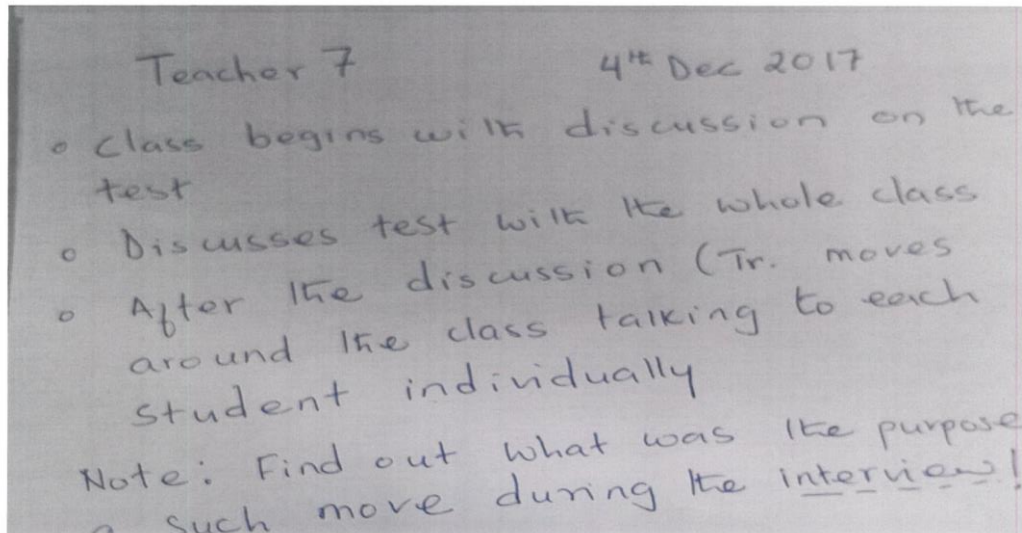 Teacher 7 4th Dec 2017
• Class begins with discussion on the
test
• Discusses test with the whole class
• After the discussion (Tr. moves
around the class talking to each
student individually
Note: Find out what was the purpose
such move during the interview!